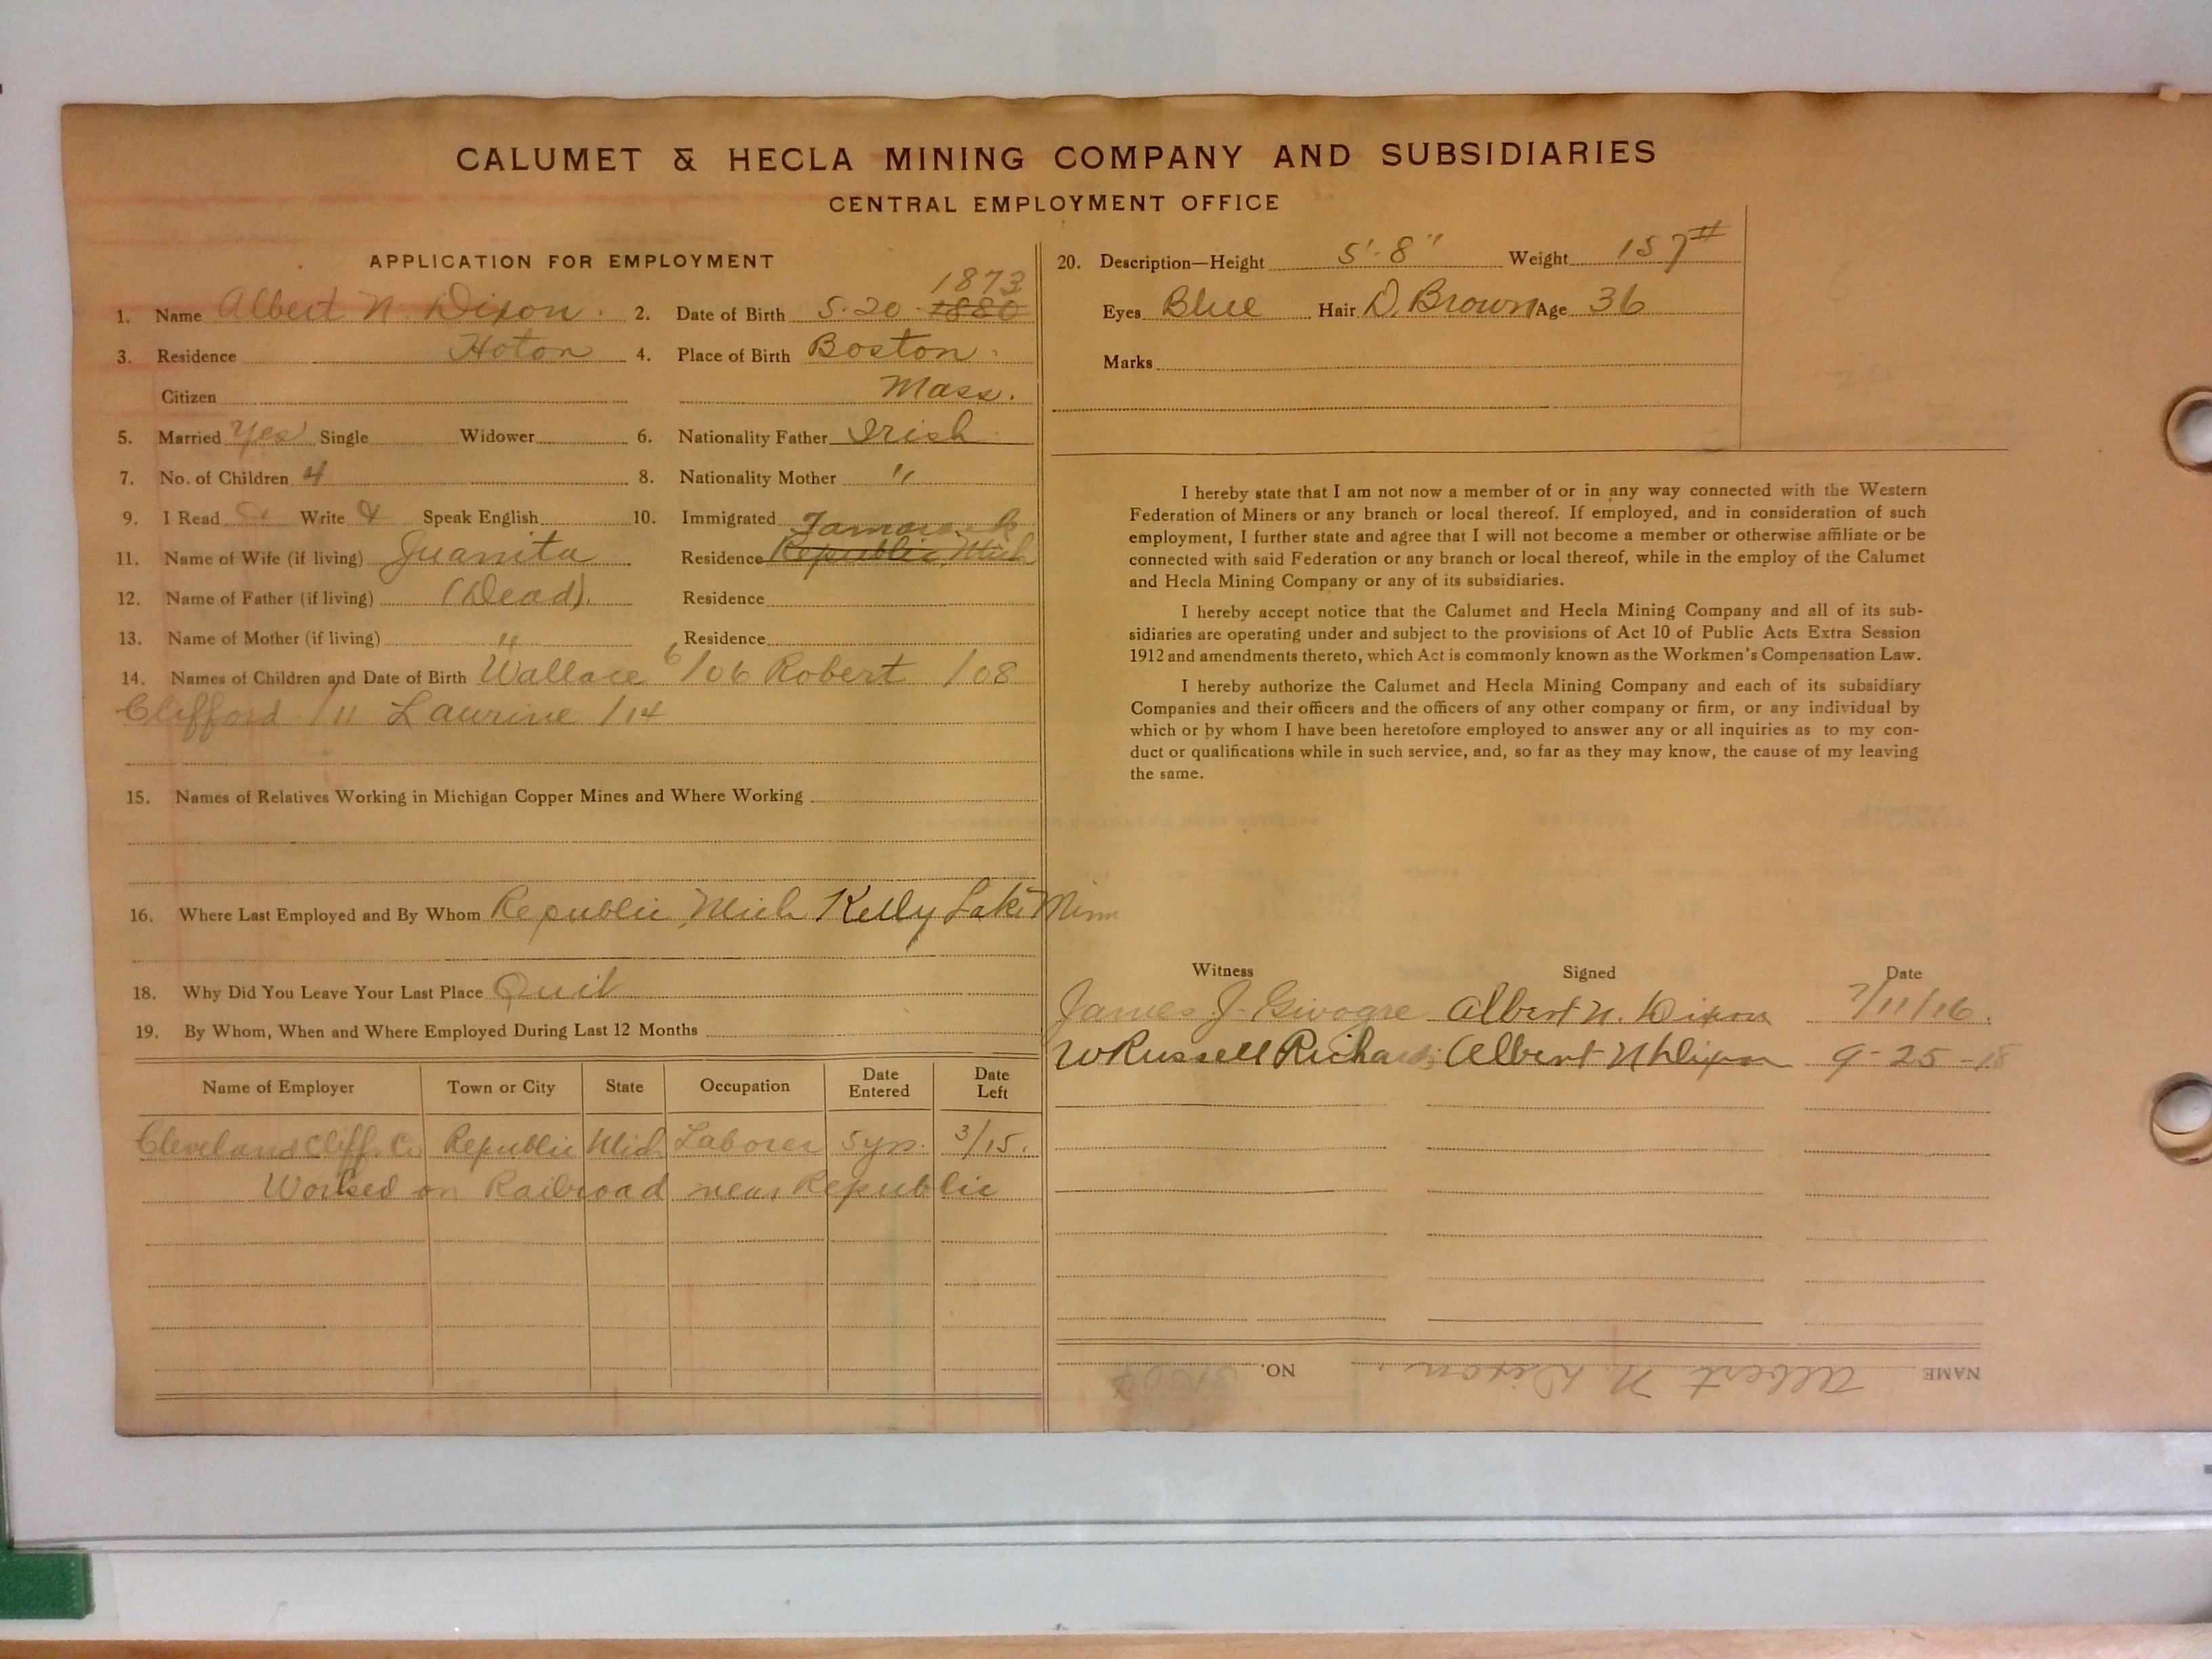 CALUMET & HECLA MINING COMPANY AND SUBSIDIARIES
CENTRAL EMPLOYMENT OFFICE
APPLICATION FOR EMPLOYMENT
1873
1. Name Albert N. Dixon. 2. Date of Birth 5-20-1880
3. Residence Hoton 4. Place of Birth Boston
Citizen Mass.
5. Married Yes Single Widower 6. Nationality Father Irish
7. No. of Children 4 8. Nationality Mother "
9. I Read Write Speak English 10. Immigrated
11. Name of Wife (if living) Juanita Residence Republic, Mich
12. Name of Father (if living) (Dead). Residence
13. Name of Mother (if living) " Residence
14. Names of Children and Date of Birth Wallace 6/06 Robert /08
Clifford /11 Laurine /14
15. Names of Relatives Working in Michigan Copper Mines and Where Working
16. Where Last Employed and By Whom Republic, Mich Kelly Lake Minn
18. Why Did You Leave Your Last Place Quit
19. By Whom, When and Where Employed During Last 12 Months
Name of Employer Town or City State Occupation Date Entered Date Left
Cleveland Cliff. Co Republic Mich Laborer 5 yrs. 3/15.
Worked on Railroad near Republic
20. Description—Height 5'-8" Weight 157#
Eyes Blue Hair D. Brown Age 36
Marks
I hereby state that I am not now a member of or in any way connected with the Western
Federation of Miners or any branch or local thereof. If employed, and in consideration of such
employment, I further state and agree that I will not become a member or otherwise affiliate or be
connected with said Federation or any branch or local thereof, while in the employ of the Calumet
and Hecla Mining Company or any of its subsidiaries.
I hereby accept notice that the Calumet and Hecla Mining Company and all of its sub-
sidiaries are operating under and subject to the provisions of Act 10 of Public Acts Extra Session
1912 and amendments thereto, which Act is commonly known as the Workmen's Compensation Law.
I hereby authorize the Calumet and Hecla Mining Company and each of its subsidiary
Companies and their officers and the officers of any other company or firm, or any individual by
which or by whom I have been heretofore employed to answer any or all inquiries as to my con-
duct or qualifications while in such service, and, so far as they may know, the cause of my leaving
the same.
Witness Signed Date
James J. Givogre Albert N. Dixon 7/11/16.
W Russell Richards Albert N Dixon 9-25-18
NAME Albert N. Dixon. NO.